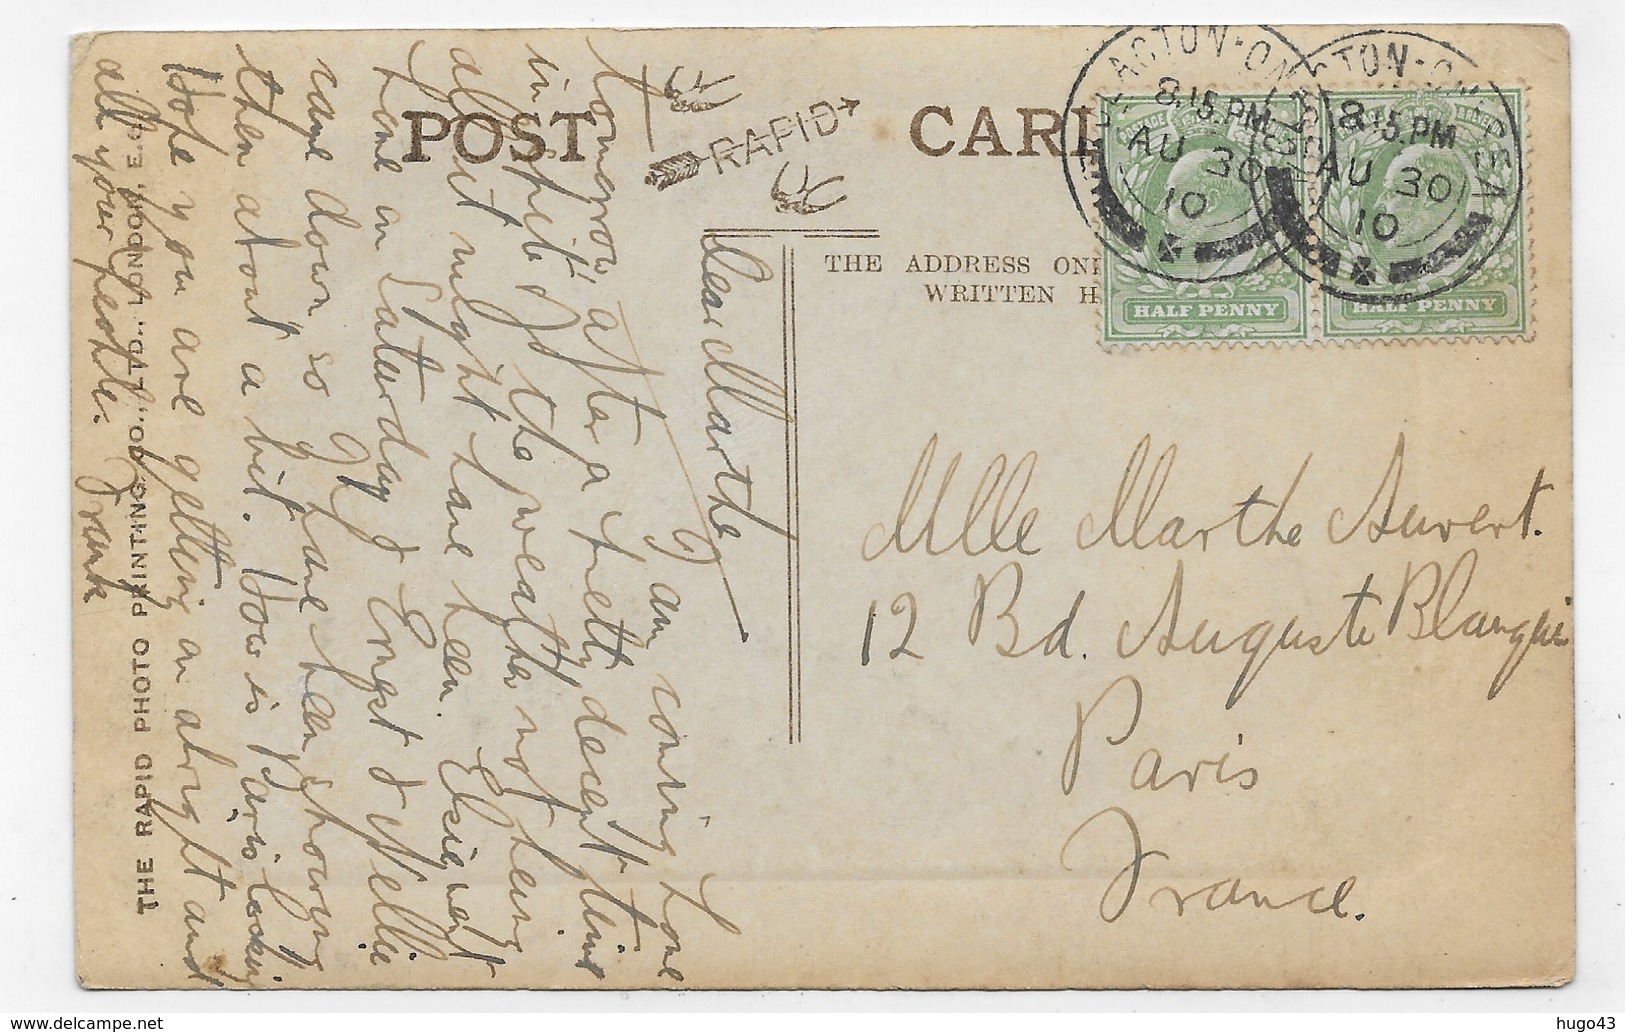 POST CARD
RAPID
THE ADDRESS ONL
WRITTEN H
CLACTON-ON-SEA
8.15 PM
AU 30
10
CLACTON-ON-SEA
8.15 PM
AU 30
10
POSTAGE
HALF PENNY
HALF PENNY
Dear Marthe
I am coming home
tomorrow after a pretty decent time
in spite of the weather not being
all it might have been. Elsie went
home on Saturday & Ernest & Nellie
came down so I have been showing
them about a bit. How is Paris looking
Hope you are getting on alright and
all your people.
Frank
THE RAPID PHOTO PRINTING CO., LTD., LONDON, E.C.
Mlle Marthe Auvert.
12 Bd. Auguste Blanqui
Paris
France.
hugo43